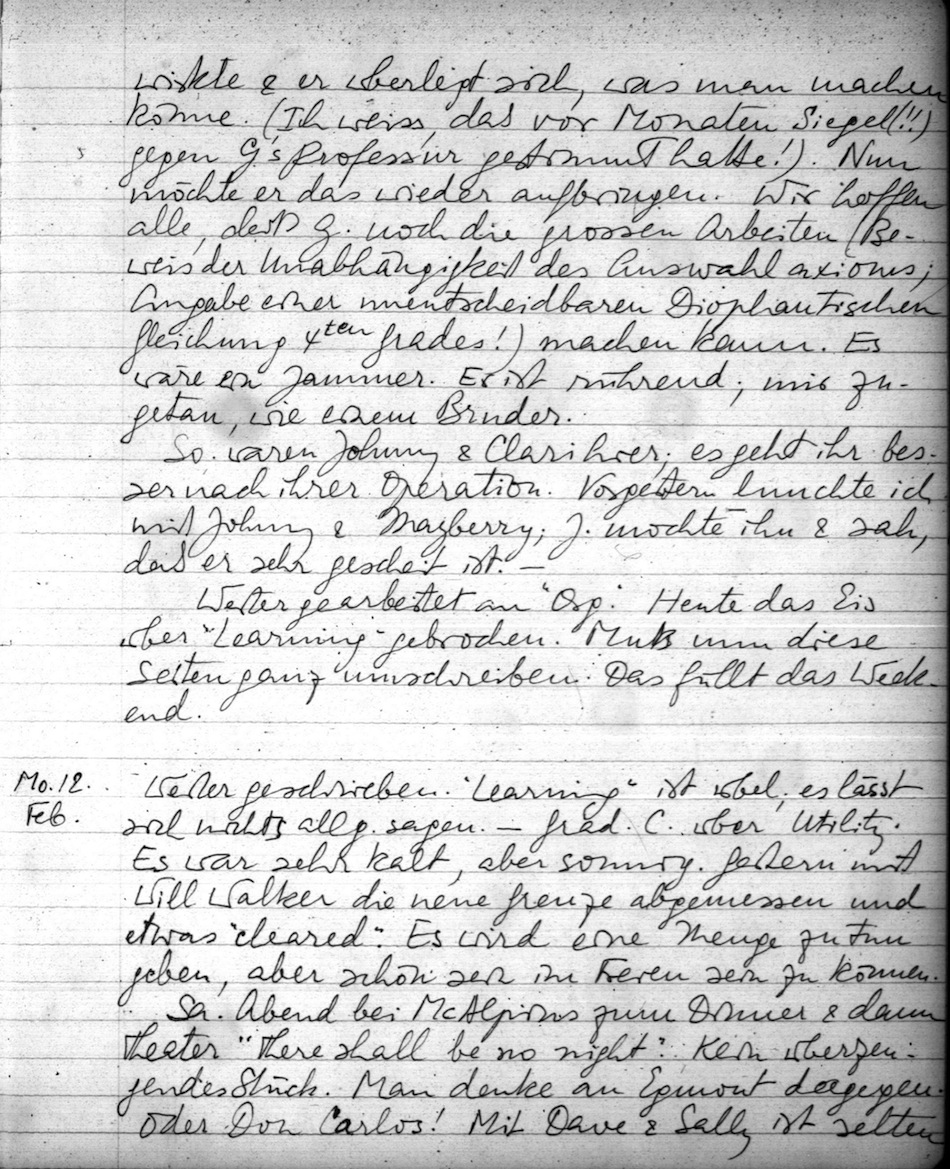 wirkte & er überlegt sich, was man machen
könne. (Ich weiss, das vor Monaten Siegel(!!)
gegen G's Professur gestimmt hatte!). Nun
möchte er das wieder aufbringen. Wir hoffen
alle, dass G. noch die grossen Arbeiten (Be-
weis der Unabhängigkeit des Auswahlaxioms;
Angabe einer unentscheidbaren Diophantischen
Gleichung 4ten Grades!) machen kann. Es
wäre ein Jammer. Er ist rührend; mir zu-
getan, wie einem Bruder.
So. waren Johnny & Clari hier; es geht ihr bes-
ser nach ihrer Operation. Vorgestern lunchte ich
mit Johnny & Mayberry; J. mochte ihn & sah,
das er sehr gescheit ist. —
Weiter gearbeitet an "Org". Heute das Eis
über "Learning" gebrochen. Muß nun diese
Seiten ganz umschreiben. Das füllt das Week-
end.
Mo. 12. Weiter geschrieben. "Learning" ist übel; es lässt
Feb. sich nichts allg. sagen. — Grad. C. über Utility.
Es war sehr kalt, aber sonnig. Gestern mit
Will Walker die neue Grenze abgemessen und
etwas "cleared". Es wird eine Menge zu tun
geben, aber schön sein im Freien sein zu können.
Sa. Abend bei McAlpins zum Dinner & dann
Theater "There shall be no night". Kein überzeu-
gendes Stück. Man denke an Egmont dagegen
oder Don Carlos! Mit Dave & Sally ist selten